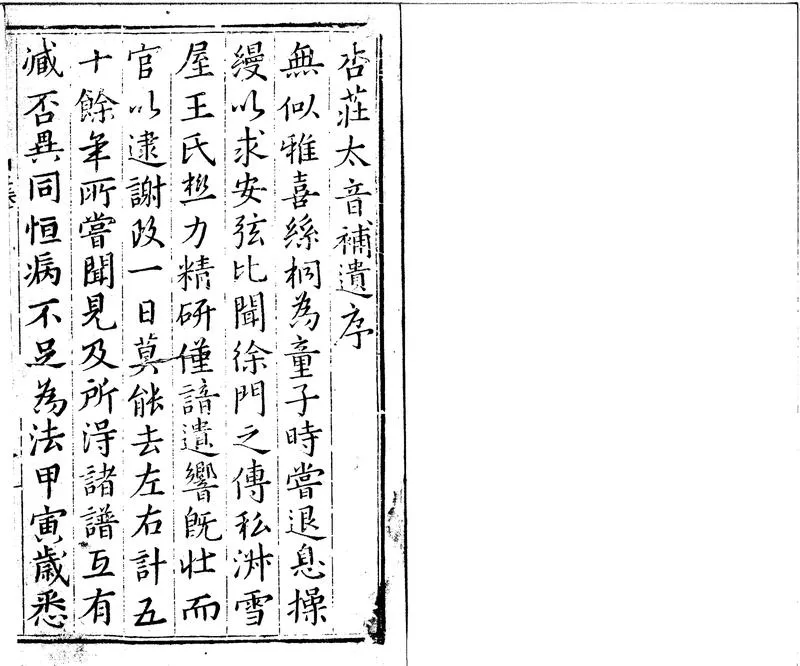 杏莊太音補遺序
無似雅喜絲桐為童子時嘗退息操
縵以求安弦比聞徐門之傳私淑雪
屋王氏極力精研僅諳遺響既壯而
官以逮謝政一日莫能去左右計五
十餘年所嘗聞見及所得諸譜互有
臧否異同恒病不足為法甲寅歲悉